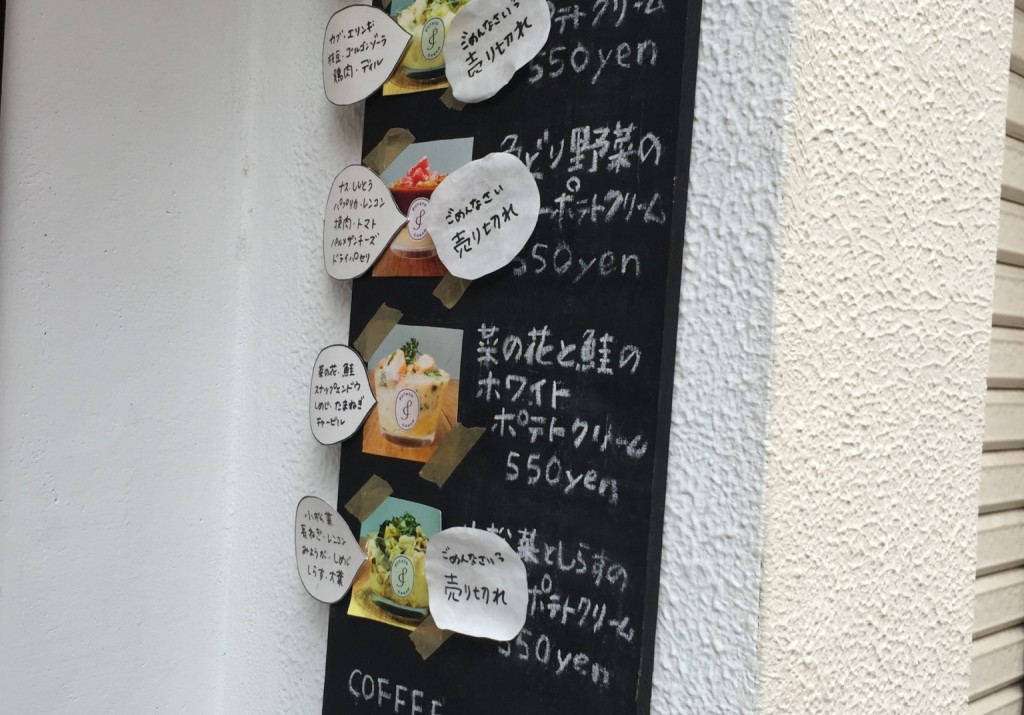 カブ・エリンギ
枝豆・ゴルゴンゾーラ
鶏肉・ディル
ごめんなさい
売り切れ
ポテトクリーム
550yen
ナス・ししとう
パプリカ・レンコン
挽肉・トマト
パルメザンチーズ
ドライパセリ
ごめんなさい
売り切れ
どり野菜の
ーポテトクリーム
550yen
菜の花・鮭
スナップエンドウ
しめじ・たまねぎ
チャービル
菜の花と鮭の
ホワイト
ポテトクリーム
550yen
小松菜
長ねぎ・レンコン
みょうが・しめじ
しらす・大葉
ごめんなさい
売り切れ
松菜としらすの
ポテトクリーム
550yen
COFFEE